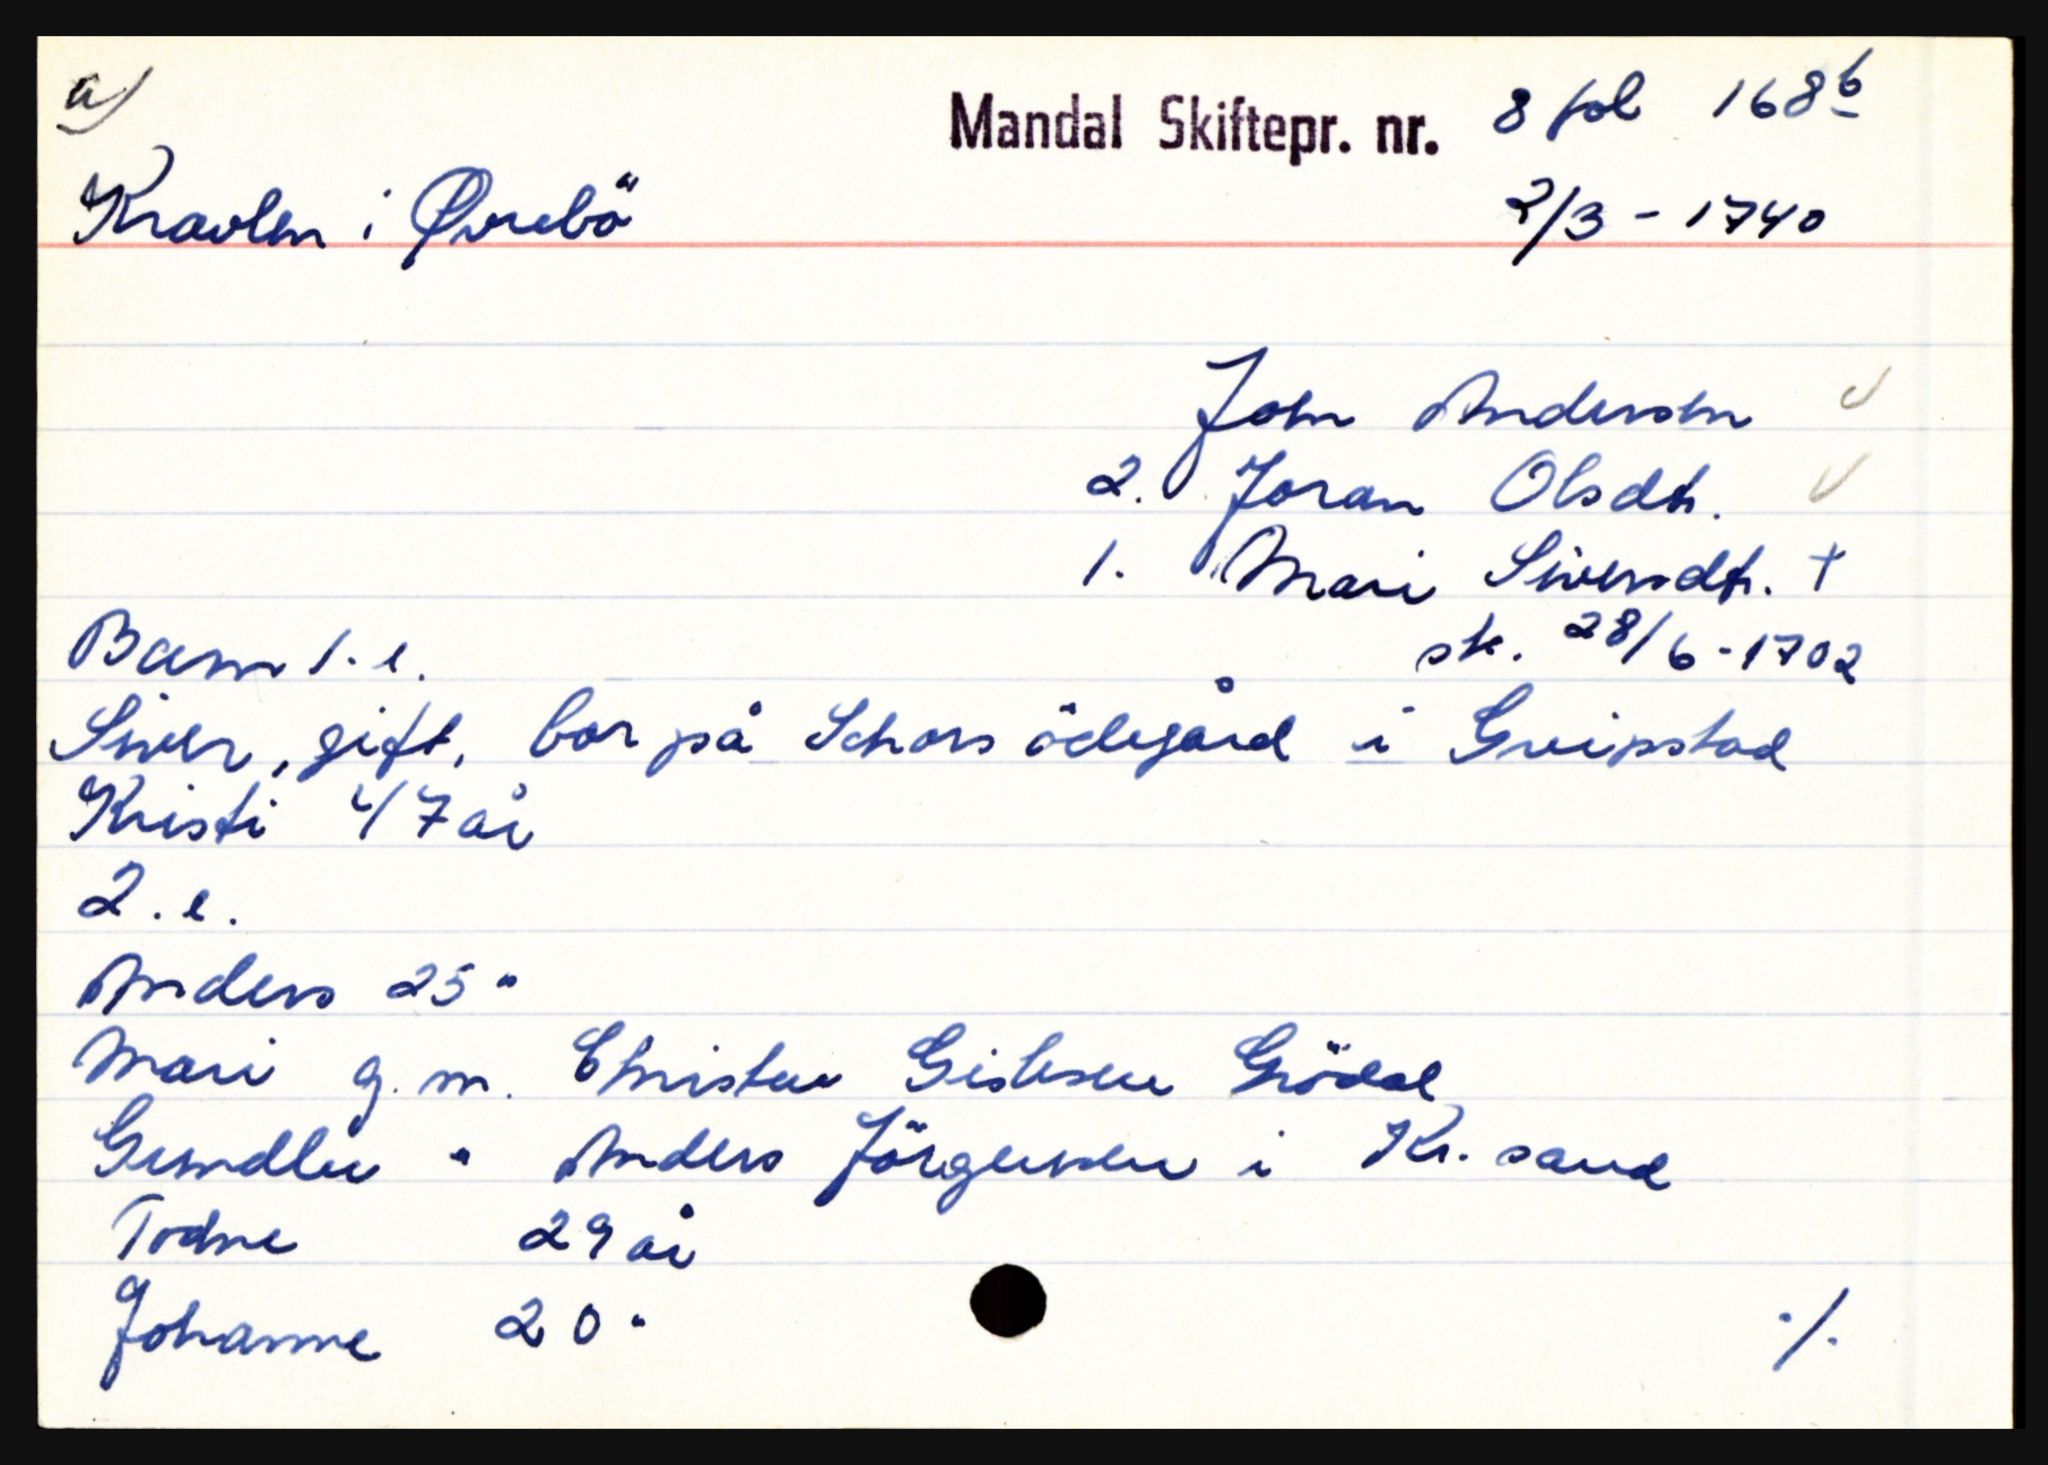 a)
Mandal Skiftepr. nr. 8 fol 168b
Kravlen i Øvrebö 2/3 - 1740
John Andersen
2. Joran Olsdtr.
1. Mari Siversdtr. +
sk. 28/6-1702
Barn 1. e.
Siver, gift, bor på Schors ödegård i Greipstad
Kristi 47 år
2. e.
Anders 25 "
Mari g. m. Christen Gislesen Grödal
Gundlei " Anders Jörgensen i Kr. sand
Todne 29 år
Johanne 20 "
./.